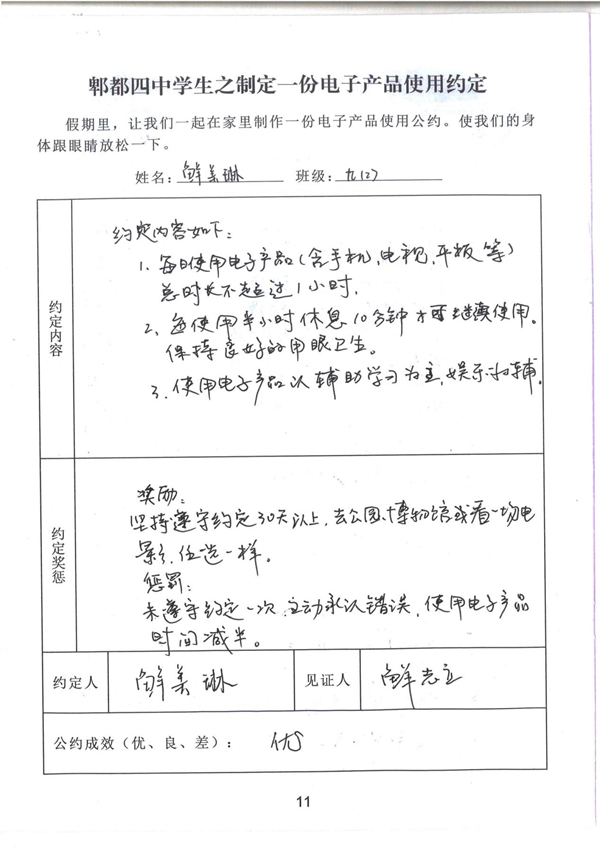 郫都四中学生之制定一份电子产品使用约定
假期里，让我们一起在家里制作一份电子产品使用公约。使我们的身
体跟眼睛放松一下。
姓名：鲜美琳 班级：九(2)
约定内容
约定内容如下：
1、每日使用电子产品(含手机,电视,平板等)
总时长不超过1小时.
2、每使用半小时休息10分钟才可继续使用。
保持良好的用眼卫生。
3、使用电子产品以辅助学习为主,娱乐为辅.
约定奖惩
奖励:
坚持遵守约定30天以上,去公园、博物馆或看一场电
影,任选一样。
惩罚:
未遵守约定一次,主动承认错误,使用电子产品
时间减半。
约定人 鲜美琳 见证人 鲜志立
公约成效（优、良、差）： 优
11